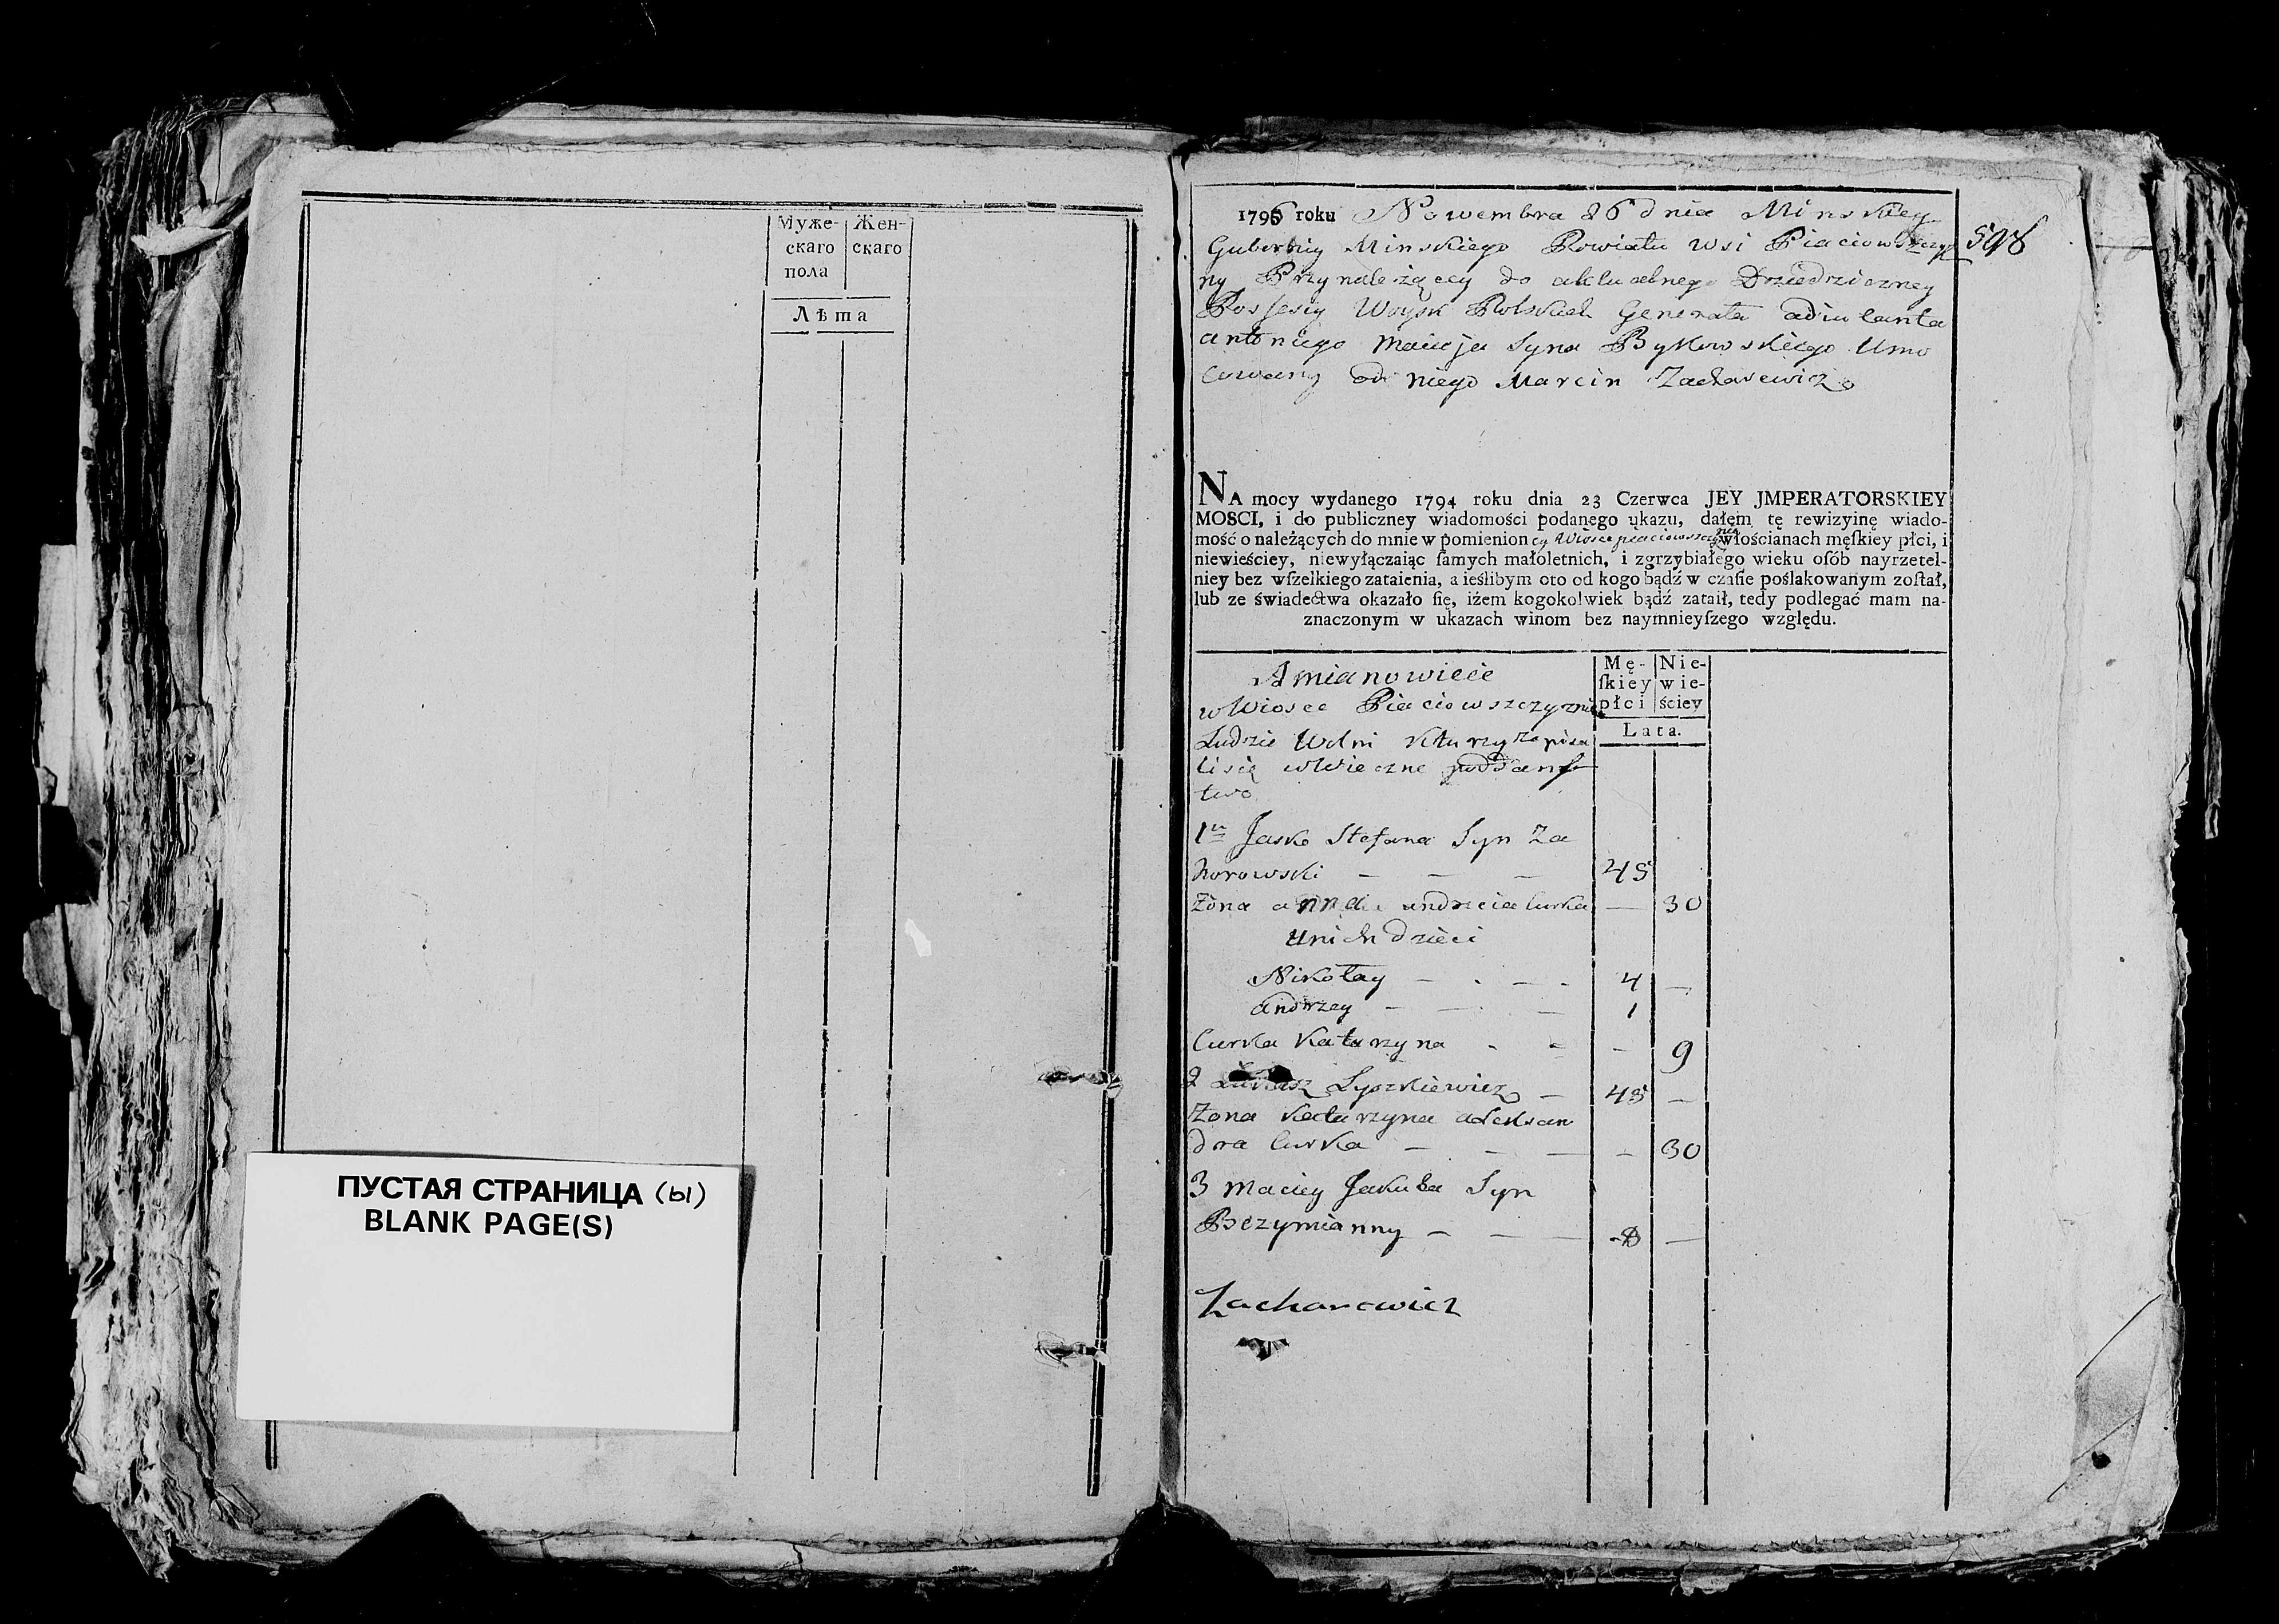 Муже-
скаго
пола
Жен-
скаго
Лѣта
ПУСТАЯ СТРАНИЦА (ы)
BLANK PAGE(S)
1795 roku Nowembra 26 dnia Minskiey
Gubernij Minskiego Powiatu Wsi Piaciowszczyz
598
ny Przynależącey do aktualnego Dziedziczney
Possesij Woysk Polskich Generała adiutanta
antoniego Macieja Syna Bykowskiego Umo
cowany od niego Marcin Zacharewicz
NA mocy wydanego 1794 roku dnia 23 Czerwca JEY JMPERATORSKIEY
MOSCI, i do publiczney wiadomości podanego ukazu, dałem tę rewizyinę wiado-
mość o należących do mnie w pomienion ey Wiosce włościanach męſkiey płci, i
niewieściey, niewyłączaiąc ſamych małoletnich, i zgrzybiałego wieku oſób nayrzetel-
niey bez wſzelkiego zataienia, a ieślibym oto od kogo bądź w czaſie poślakowanym zoſtał,
lub ze świadectwa okazało ſię, iżem kogokolwiek bądź zataił, tedy podlegać mam na-
znaczonym w ukazach winom bez naymnieyſzego względu.
Mę-
ſkiey
płci
Nie-
wie-
ściey
Lata.
Amianowicie
w Wiosce Piaciowszczyznie
Ludzie Wolni Kturzy zapisa
li się wWieczne poddans
two
1u Jasko Stefana Syn Za
horowski — — — 45
Żona anna andrzeia Curka — 30
Unich dzieci
Nikołay — . — . 4 —
andrzey — — — 1
Curka Katarzyna - - - 9
2 Łukasz Łyszkiewicz — 45 —
Żona Katarzyna aleksan
dra Curka — - — - 30
3 Maciey Jakuba Syn
Bezymianny — — — —
Zacharewicz